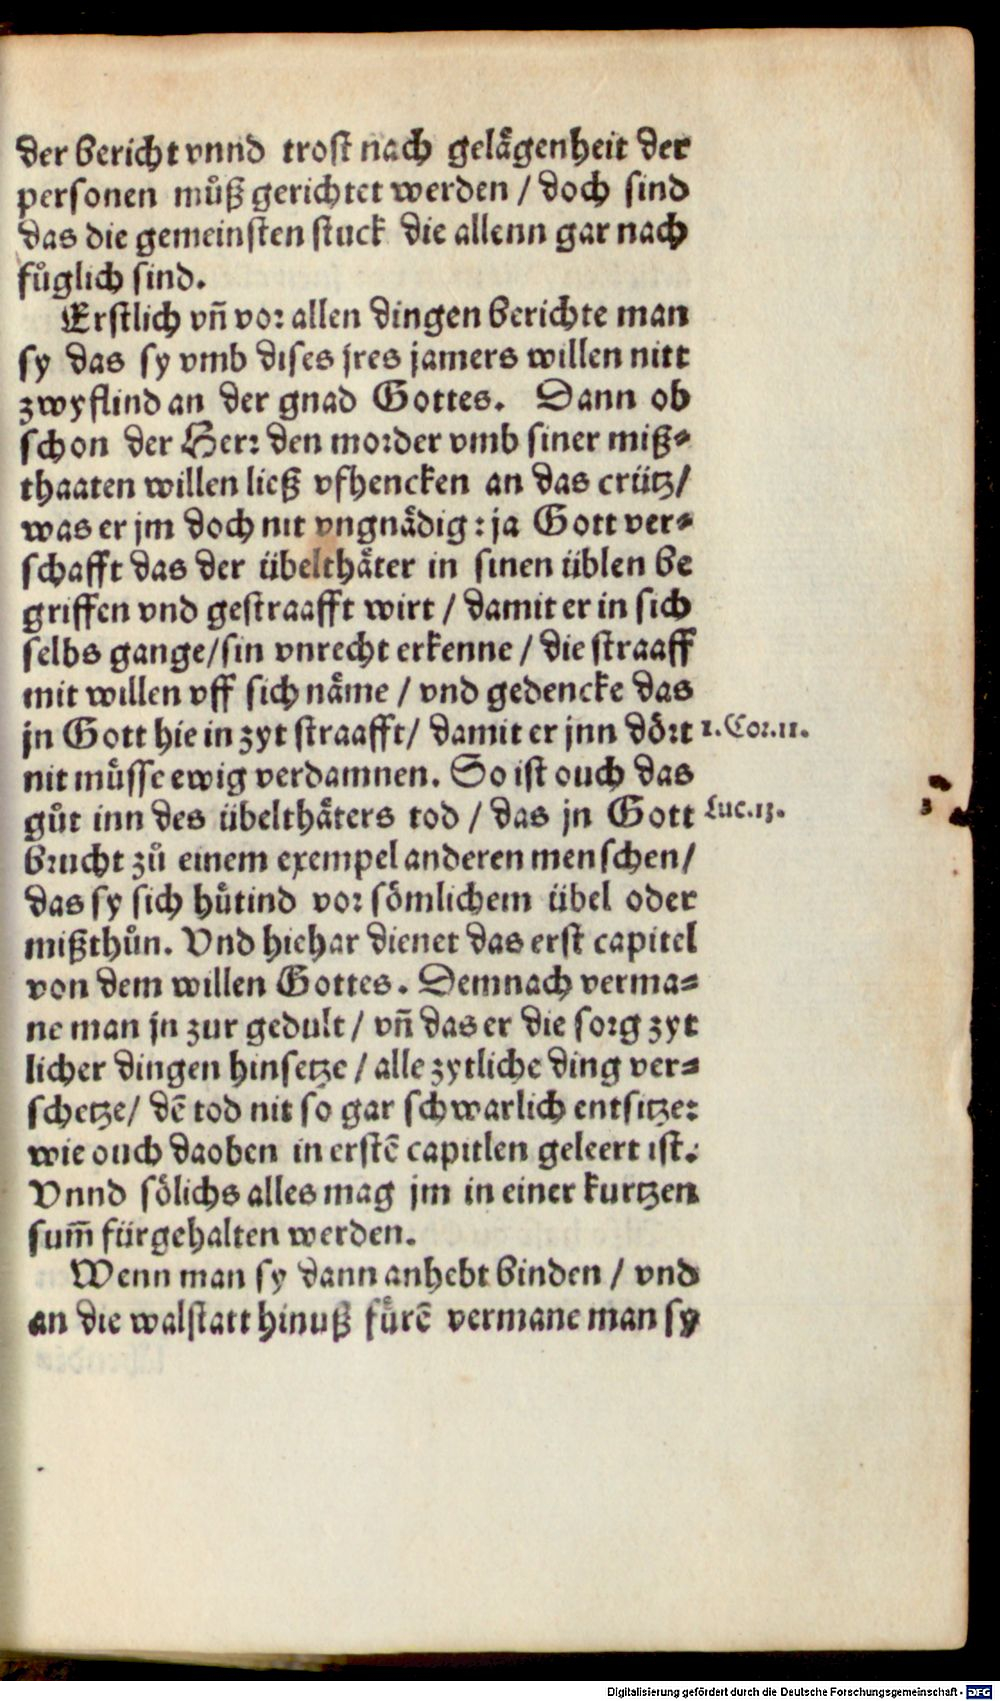 der bericht vnnd trost nach gelaͤgenheit der
personen muͦß gerichtet werden / doch sind
das die gemeinsten stuck die allenn gar nach
fuͦglich sind.
Erstlich vñ vor allen dingen berichte man
sy das sy vmb dises jres jamers willen nitt
zwyflind an der gnad Gottes. Dann ob
schon der Herr den morder vmb siner miß⸗
thaaten willen ließ vfhencken an das crütz/
was er jm doch nit vngnaͤdig: ja Gott ver⸗
schafft das der übelthaͤter in sinen üblen be
griffen vnd gestraafft wirt / damit er in sich
selbs gange/sin vnrecht erkenne / die straaff
mit willen vff sich naͤme / vnd gedencke das
jn Gott hie in zyt straafft/ damit er jnn doͤrt 1. Cor. 11.
nit muͤsse ewig verdamnen. So ist ouch das
guͦt inn des übelthaͤters tod / das jn Gott Luc. 13.
brucht zuͦ einem exempel anderen menschen/
das sy sich huͤtind vor soͤmlichem übel oder
mißthuͦn. Vnd hiehar dienet das erst capitel
von dem willen Gottes. Demnach verma⸗
ne man jn zur gedult / vñ das er die sorg zyt
licher dingen hinsetze / alle zytliche ding ver⸗
schetze/ dē tod nit so gar schwarlich entsitze:
wie ouch daoben in erstē capitlen geleert ist.
Vnnd soͤlichs alles mag jm in einer kurtzen
sum̄ fürgehalten werden.
Wenn man sy dann anhebt binden / vnd
an die walstatt hinuß fuͤrē vermane man sy
Digitalisierung gefördert durch die Deutsche Forschungsgemeinschaft - DFG